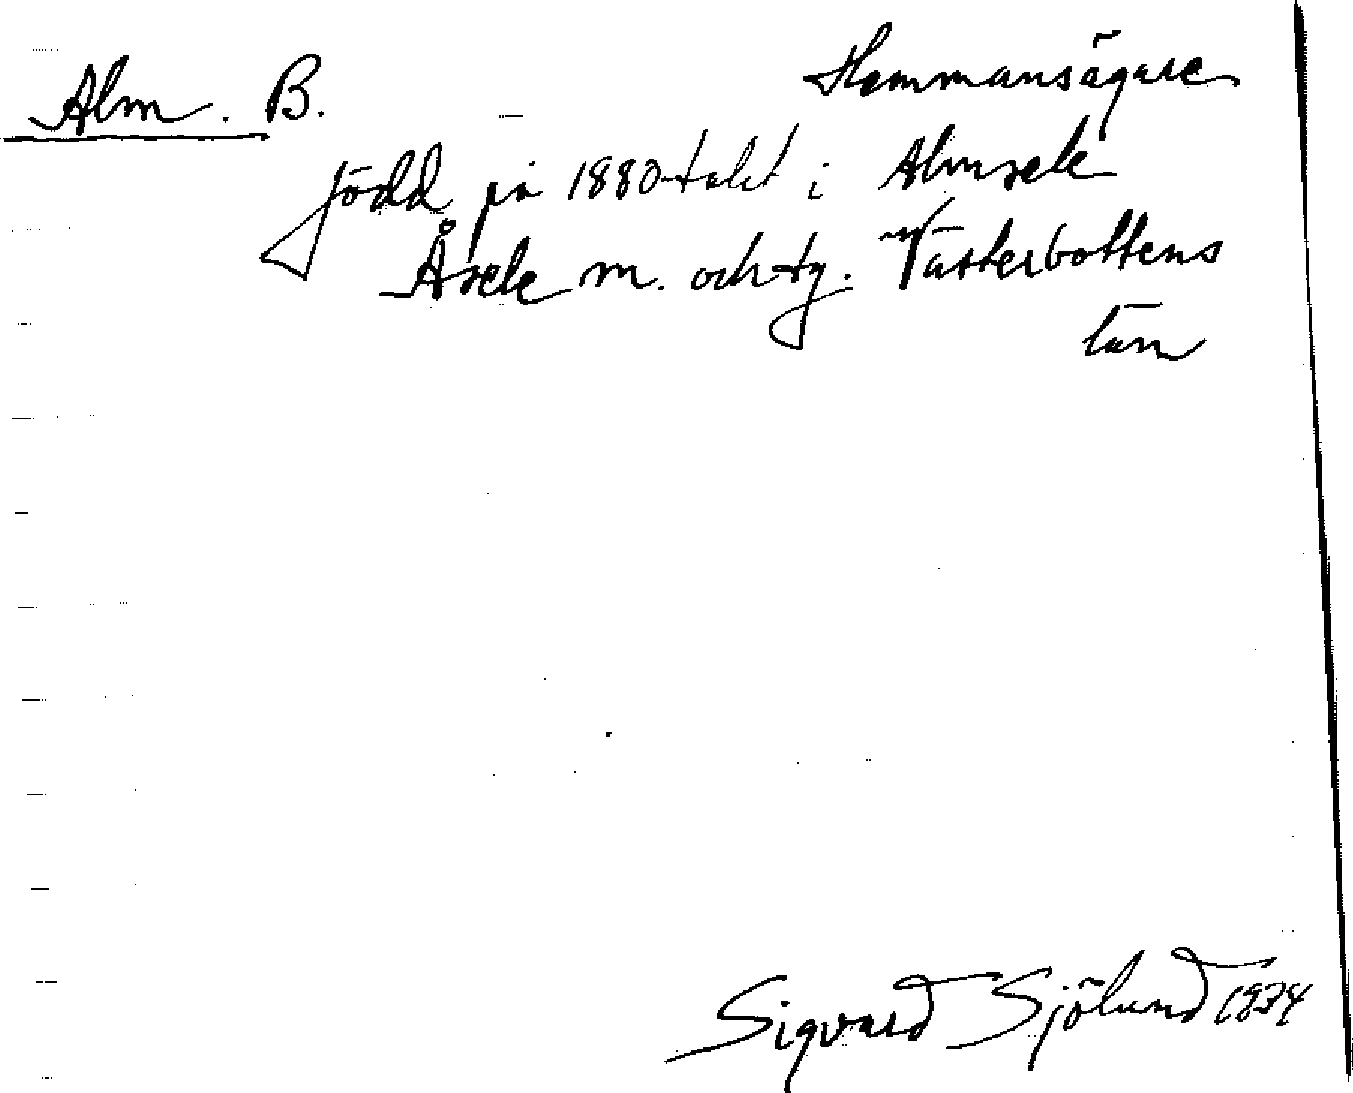 Alm. B. Hemmansägare
född på 1880-talet i Almsele
Åsele m. och tg. Västerbottens
län
Sigvard Sjölund 1934